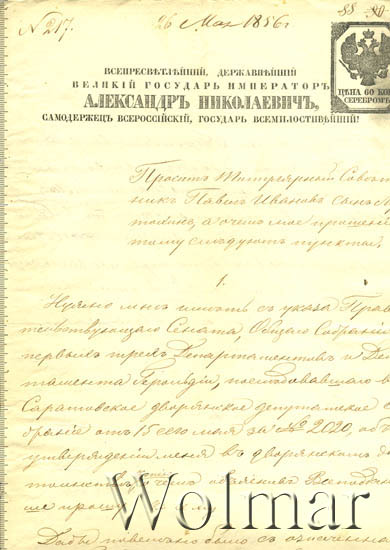 № 217.
26 Мая 1856 г
88 - 90
ВСЕПРЕСВѢТЛѢЙШІЙ, ДЕРЖАВНѢЙШІЙ
ВЕЛИКІЙ ГОСУДАРЬ ИМПЕРАТОРЪ
АЛЕКСАНДРЪ НИКОЛАЕВИЧЪ,
САМОДЕРЖЕЦЪ ВСЕРОССІЙСКІЙ, ГОСУДАРЬ ВСЕМИЛОСТИВѢЙШІЙ!
ЦѢНА 60 КОП
СЕРЕБРОМЪ
Проситъ Титулярный Совѣт
никъ Павелъ Ивановъ сынъ
а о чемъ мое прошеніе
тому слѣдуютъ пункты.
1.
Нужно мнѣ имѣть съ указа Прави
тельствующаго Сената, Общаго Собранія
первыхъ трехъ Департаментовъ и Де
тамента Герольдіи, послѣдовавшаго в
Саратовское дворянское депутатское со
браніе отъ 15 сего мая за № 2020, объ
утвержденіи меня въ дворянскомъ до
стоинствѣ
ше прошу
Дабы повелѣно было съ означенна
Wolmar